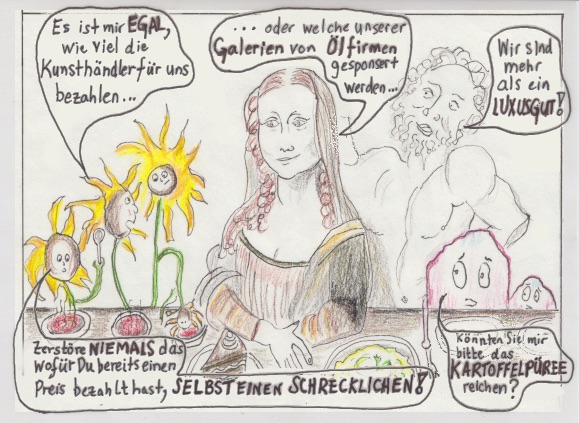 Es ist mir EGAL,
wie viel die
Kunsthändler für uns
bezahlen...
... oder welche unserer
Galerien von Ölfirmen
gesponsert
werden...
Wir sind
mehr
als ein
LUXUSGUT!
Zerstöre NIEMALS das
wofür Du bereits einen
Preis bezahlt hast, SELBST EINEN SCHRECKLICHEN!
Könnten Sie mir
bitte das
KARTOFFELPÜREE
reichen?